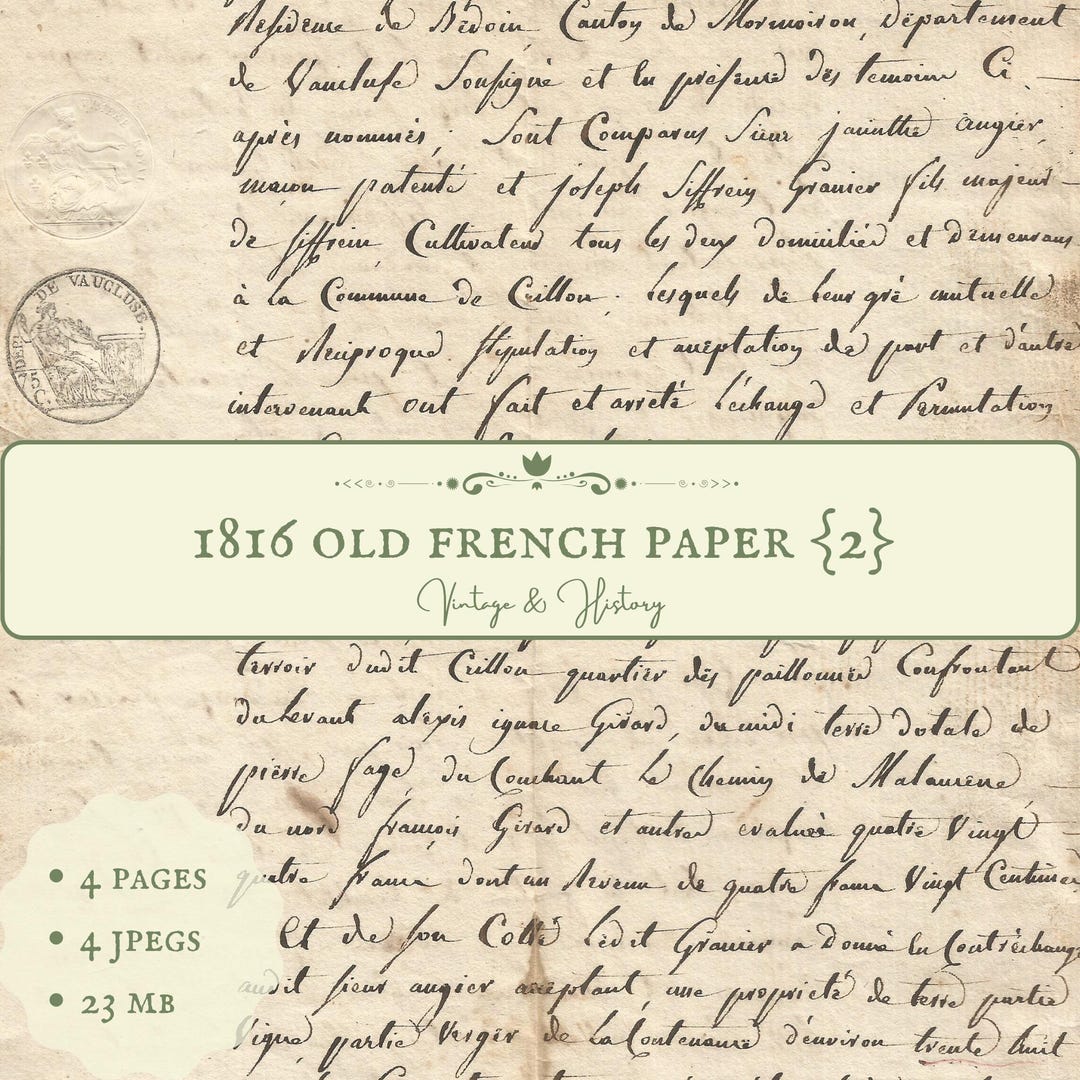 Résidence de Bédoin, Canton de Mormoiron, département
de Vaucluse Soussigné et en présence des temoins Ci
après nommés; Sont Comparus Sieur jacinthe augier,
maçon patenté et joseph Siffrein Granier fils majeur
de siffrein, Cultivateur tous les deux domiciliés et demeurans
à la Commune de Crillon. lesquels de leur gré mutuelle
et réciproque stipulation et acceptation de part et d'autre
intervenant ont fait et arreté l'échange et Permutation
DE VAUCLUSE.
1816 OLD FRENCH PAPER {2}
Vintage & History
terroir dudit Crillon quartier des paillounié Confrontant
du levant alexis ignace Girard, du midi terre dotale de
pierre sage, du Couchant le Chemin de Malaucene,
du nord françois Girard et autres evaluée quatre Vingt
quatre francs dont un Revenu de quatre francs Vingt Centimes
Et de son Cotté ledit Granier a Donné en Contréchange
audit sieur augier acceptant, une propriété de terre partie
Vigne, partie Verger de la Contenance d'environ trente huit
• 4 PAGES
• 4 JPEGS
• 23 MB